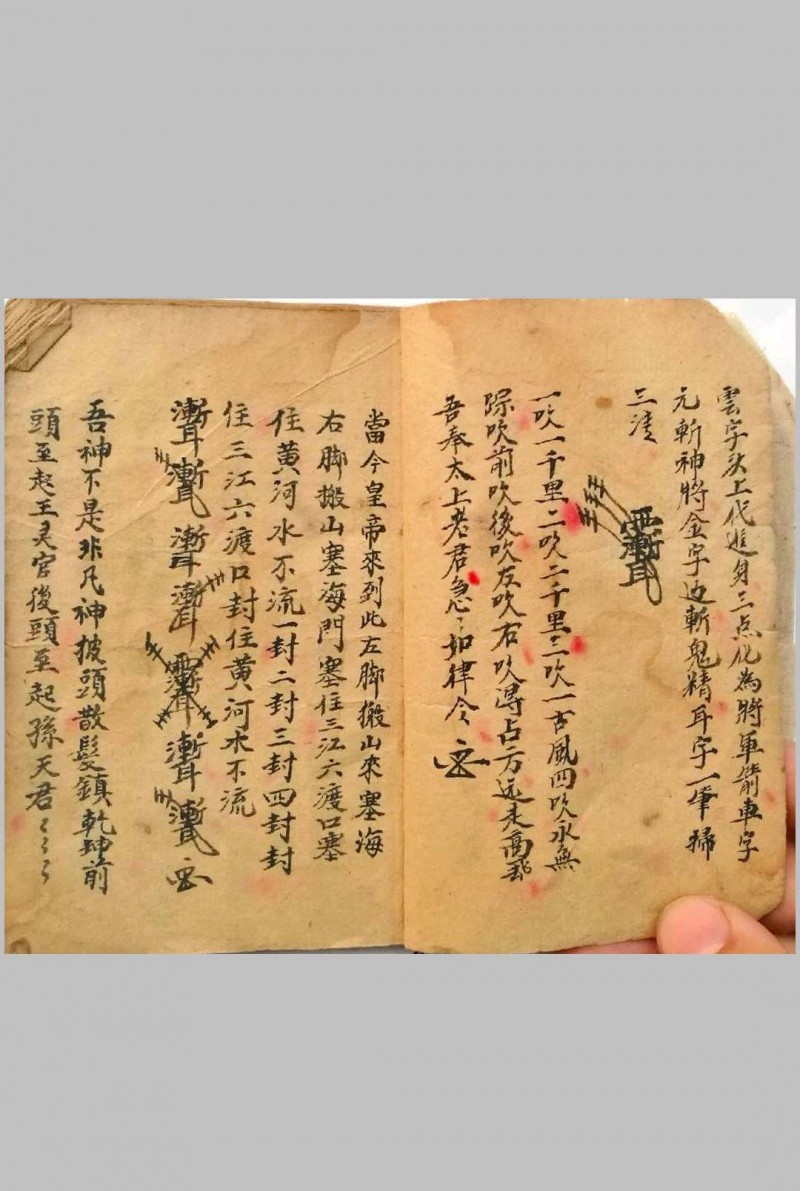 雲字头上代進身三点化為將軍箭車字
元斬神將金字边斬鬼精耳字一筆掃
三清
一吹一千里二吹二千里三吹一古風四吹永無
踪吹前吹後吹左吹右吹得占方远走高飛
吾奉太上老君急〻如律令
當今皇帝來到此左脚搬山來塞海
右脚搬山塞海門塞住三江六渡口塞
住黄河水不流一封二封三封四封封
住三江六渡口封住黄河水不流
吾神不是非凡神披頭散髮鎮乾坤前
頭至起王灵官後頭至起孫天君〻〻〻